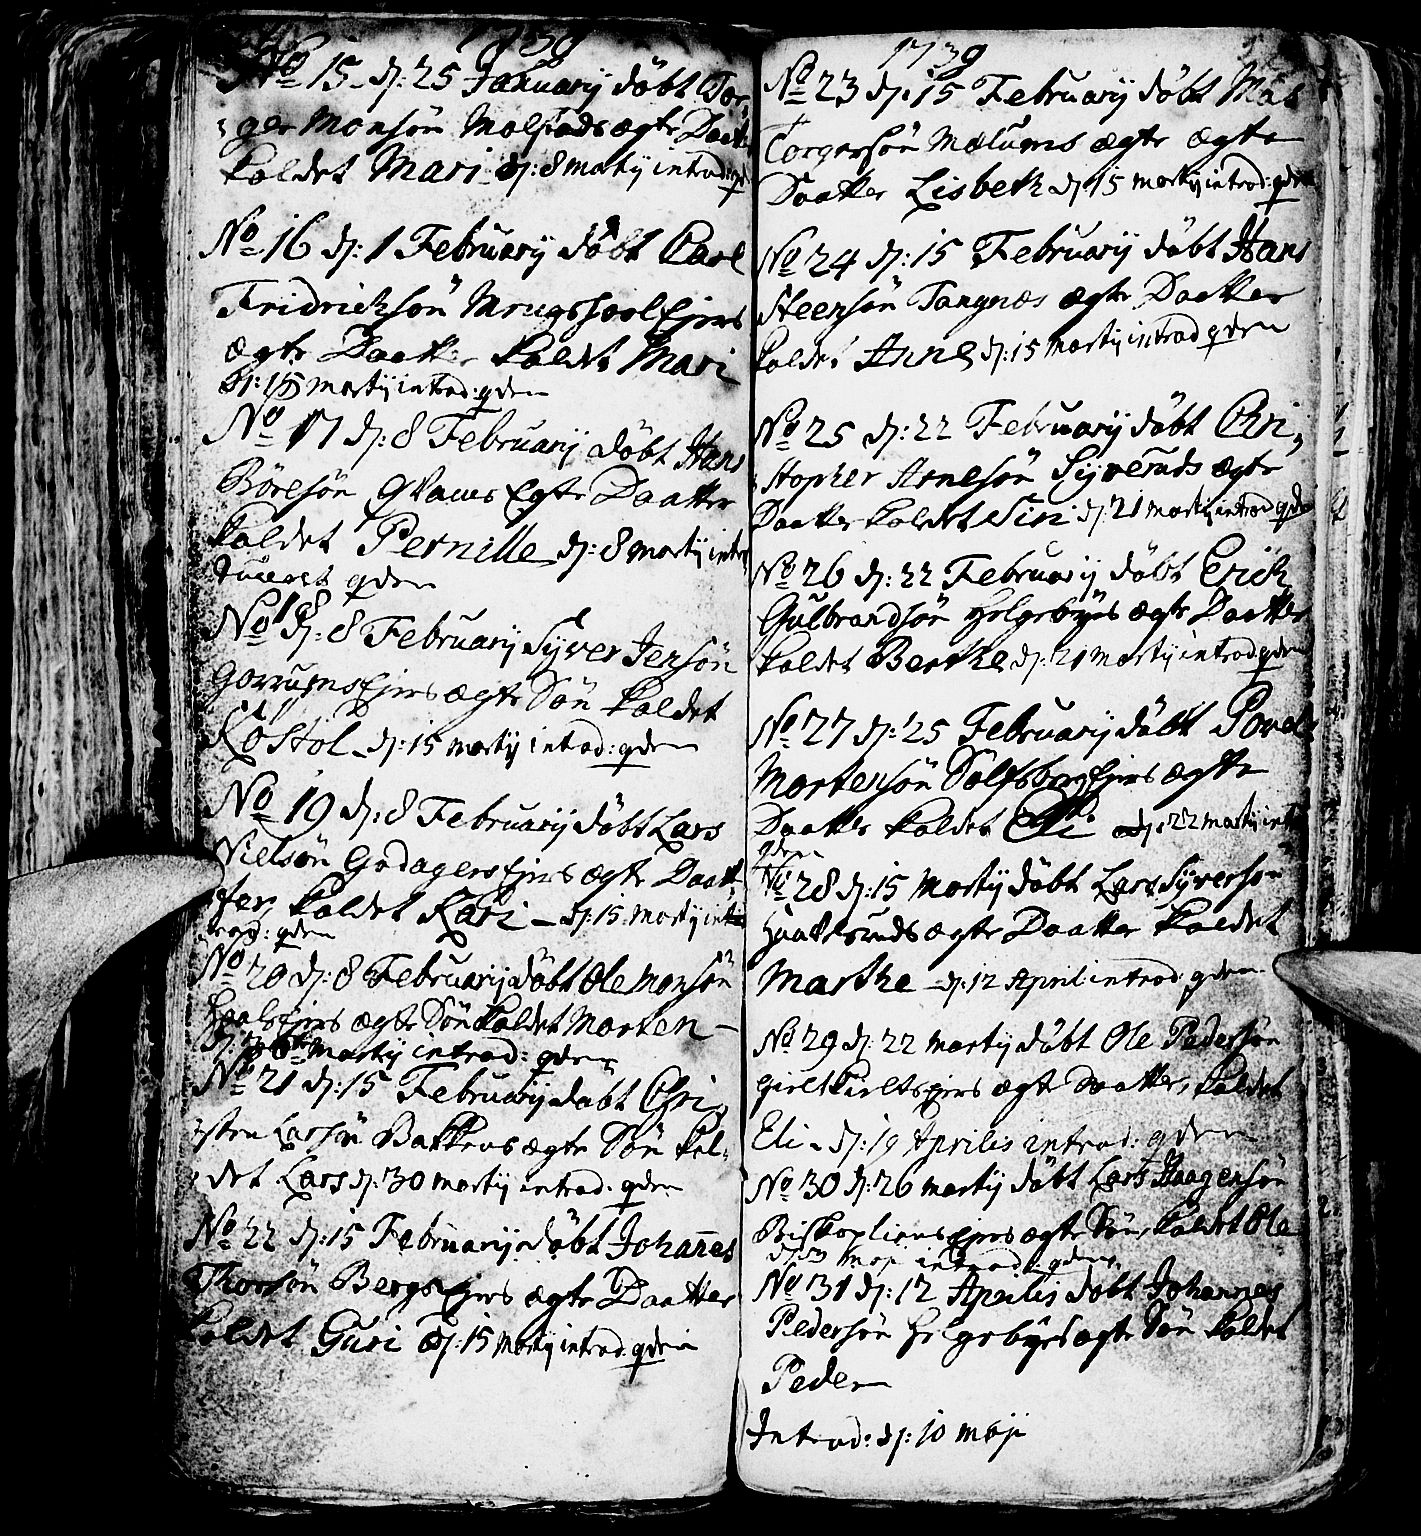 1739
No 15 d: 25 January døbt Tor-
ger Monsøn Molstads ægte Daatter
kaldet Mari d: 8 martij introd: qden
No 16 d: 1 February døbt Carl
Fridrichsøn ægte Daatter kaldet Mari
d: 15 martij introd: qden
No 17 d: 8 February døbt Hans
Børesøn Egte Daatter
kaldet Pernille d: 8 martij intro
duceret qden
No 18 d: 8 February Syver Jensøn
Gorrums Ejers ægte Søn kaldet
Kostol d: 15 martij introd: qden
No 19 d: 8 February døbt Lars
Nielsøn Godagers Ejers ægte Daat-
ter, kaldet Kari d: 15 martij int
rod: qden
No 20 d: 8 February døbt Ole Monsøn
Ejers ægte Søn kaldet Morten
martij introd: qden
No 21 d: 15 February døbt Chri-
sten Larsøn Bakkens ægte Søn kal-
det Lars d: 30 martij introd: qden
No 22 d: 15 February døbt Johannes
Thorsøn Bergs Ejers ægte Daatter
kaldet Guri d: 15 martij introd: qden
1739
No 23 d: 15 February døbt Mas
Torgersøn Mælums ægte ægte
Daatter Lisbeth d: 15 martij introd: qden
No 24 d: 15 February døbt Hans
Steensøn Tangnæs ægte Daatter
kaldet Anne d: 15 martij introd qden
No 25 d: 22 February døbt Chri-
stopher Arnesøn Syveruds ægte
Daatter kaldet Siri d: 21 martij introd qden
No 26 d: 22 February døbt Erich
Gulbrandsøn Helgebyes ægte Daatter
kaldet Berthe d: 21 martij introd qden
No 27 d: 25 February døbt Povel
Mortensøn Solfsberg Ejers ægte
Daatter kaldet d: 22 martij int
qden
No 28 d: 15 Martij døbt Lars Syversøn
ægte Daatter kaldet
Marthe d: 12 April introd: qden
No 29 d: 22 martij døbt Ole Pedersøn
Ejers ægte Daatter, kaldet
Eli d: 19 Aprilis introd: qden
No 30 d: 26 martij døbt Lars Haagensøn
Biskopliens Ejers ægte Søn, kaldet Ole
d: 3 Maji introd: qden
No 31 d: 12 Aprilis døbt Johannes
Pedersøn Helgebyes ægte Søn kaldet
Peder
Introd: d: 10 maji